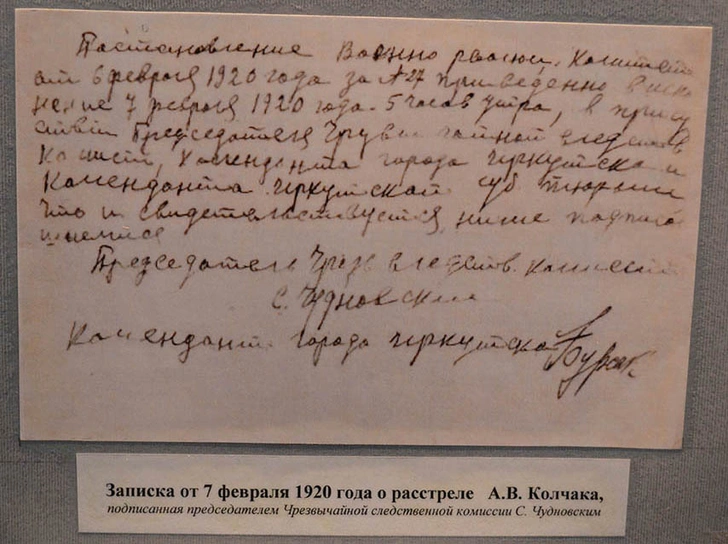 Постановление Военно револю. Комитета
от 6 февраля 1920 года за № 27 приведенно в испо
нение 7 февраля 1920 года 5 часов утра, в прису
ствіи Председателя Чрезвычайной следств
комисіи, Коменданта города Иркутска и
Коменданта Иркутской губ тюрьмы
что и свидетельствуется ниже подписа
Председатель Чрезв следств. комиссіи
С. Чудновский
Комендант города Иркутска Бурсак
Записка от 7 февраля 1920 года о расстреле А.В. Колчака,
подписанная председателем Чрезвычайной следственной комиссии С. Чудновским